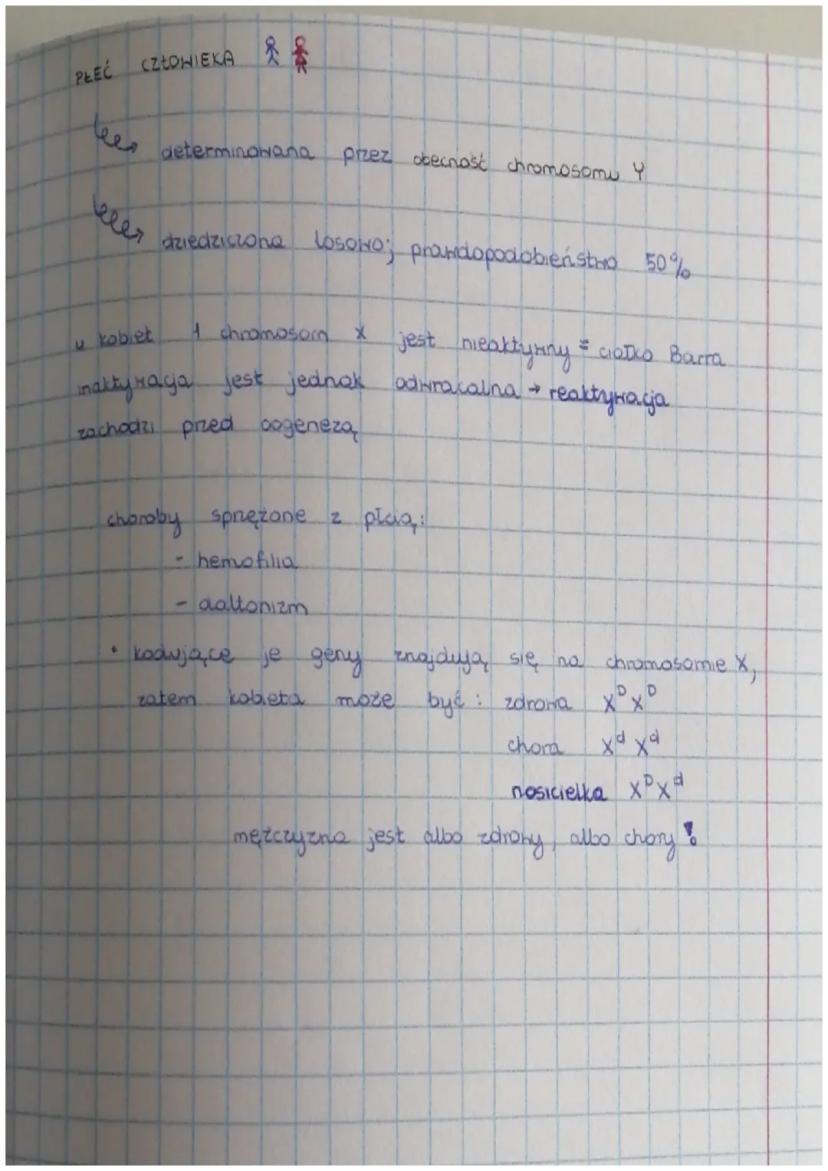 PŁEĆ CZŁOWIEKA
determinowana przez obecność chromosomu Y
dziedziczona losowo; prawdopodobieństwo 50%
u kobiet 1 chromosom X jest nieaktywny = ciałko Barra
inaktywacja jest jednak odwracalna → reaktywacja
zachodzi przed oogenezą
choroby sprzężone z płcią:
- hemofilia
- daltonizm
• kodujące je geny znajdują się na chromosomie X,
zatem kobieta może być: zdrowa XᴰXᴰ
chora XᵈXᵈ
nosicielka XᴰXᵈ
mężczyzna jest albo zdrowy, albo chory!